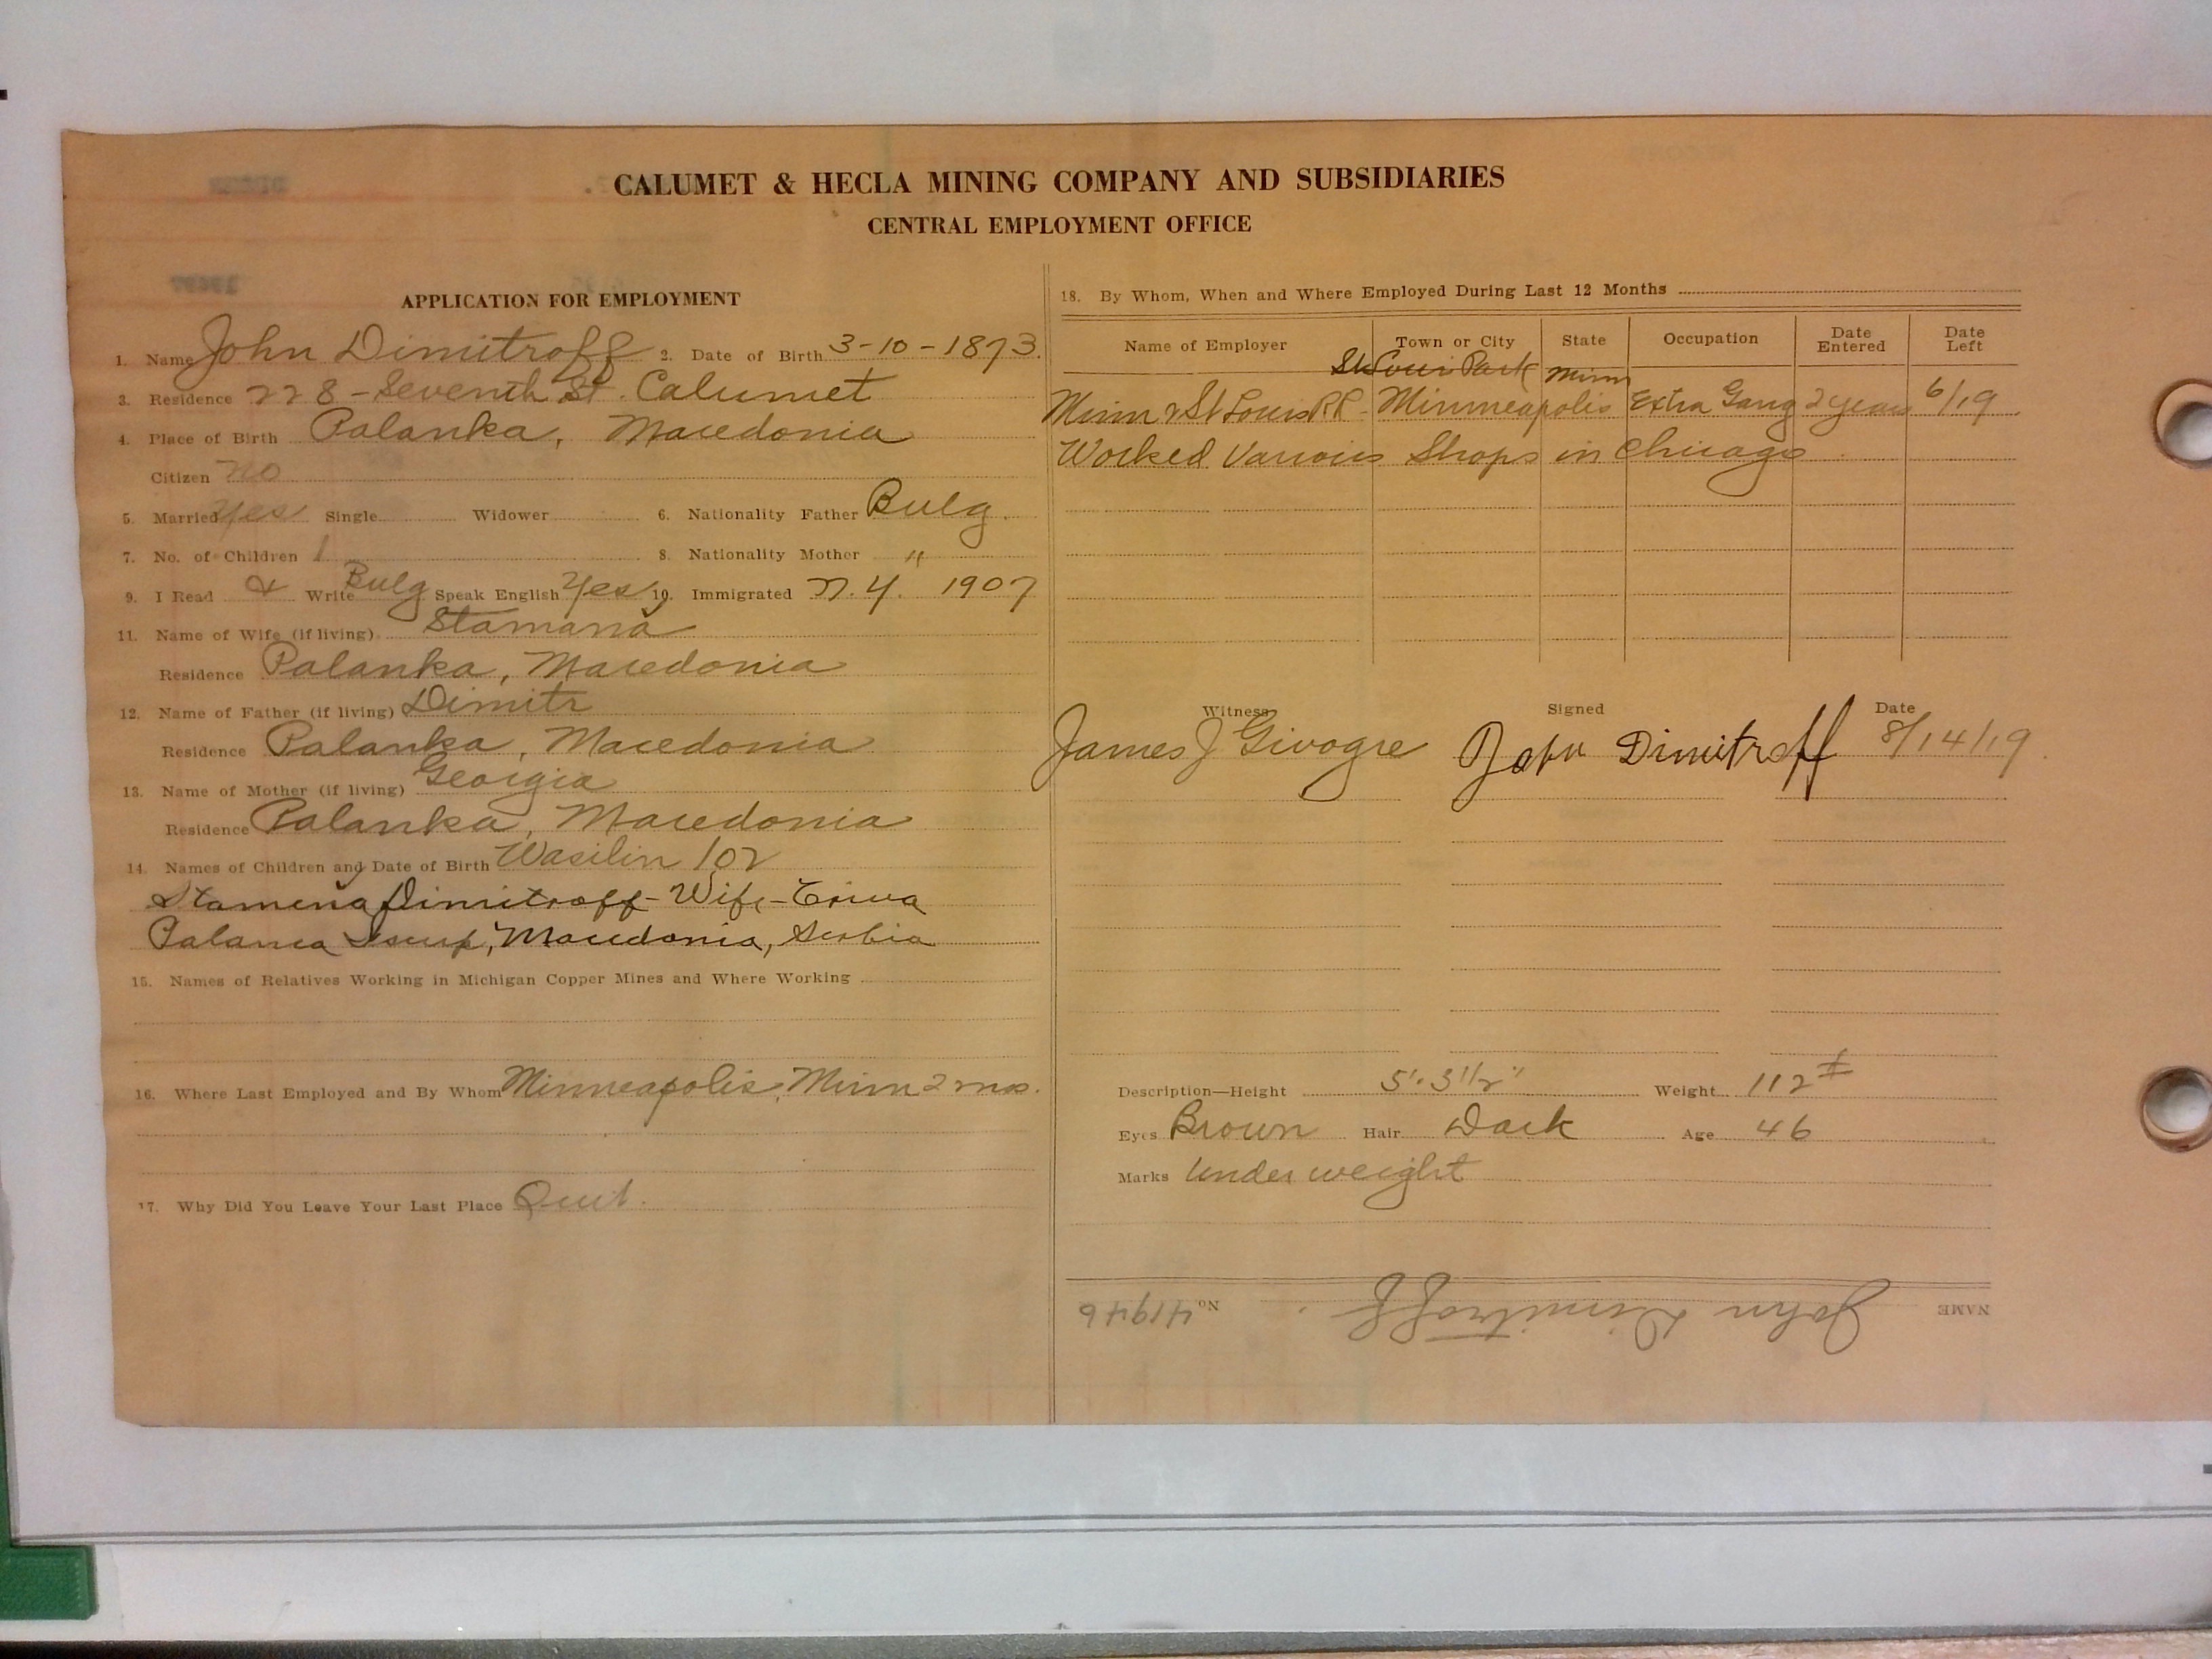 CALUMET & HECLA MINING COMPANY AND SUBSIDIARIES
CENTRAL EMPLOYMENT OFFICE
APPLICATION FOR EMPLOYMENT
1. Name John Dimitroff 2. Date of Birth 3-10-1873
3. Residence 228-Seventh St. Calumet
4. Place of Birth Palanka, Macedonia
Citizen no
5. Married yes Single Widower 6. Nationality Father Bulg.
7. No. of Children 1 8. Nationality Mother "
9. I Read & Write Bulg Speak English Yes 10. Immigrated N.Y. 1907
11. Name of Wife (if living) Stamana
Residence Palanka, Macedonia
12. Name of Father (if living) Dimitr
Residence Palanka, Macedonia
13. Name of Mother (if living) Georgia
Residence Palanka, Macedonia
14. Names of Children and Date of Birth Wasilin
Stamena Dimitroff - Wife -
Palanca Macedonia, Serbia
15. Names of Relatives Working in Michigan Copper Mines and Where Working
16. Where Last Employed and By Whom Minneapolis, Minn 2 mos.
17. Why Did You Leave Your Last Place Quit.
18. By Whom, When and Where Employed During Last 12 Months
Name of Employer Town or City State Occupation Date Entered Date Left
St Louis Park Minn
Minn & St Louis RR. Minneapolis Extra Gang 2 years 6/19
Worked Various Shops in Chicago
Witness Signed Date
James J Givogre John Dimitroff 8/14/19
Description—Height 5'. 3 1/2" Weight 112 #
Eyes Brown Hair Dark Age 46
Marks Under weight
NAME John Dimitroff. No. 41946